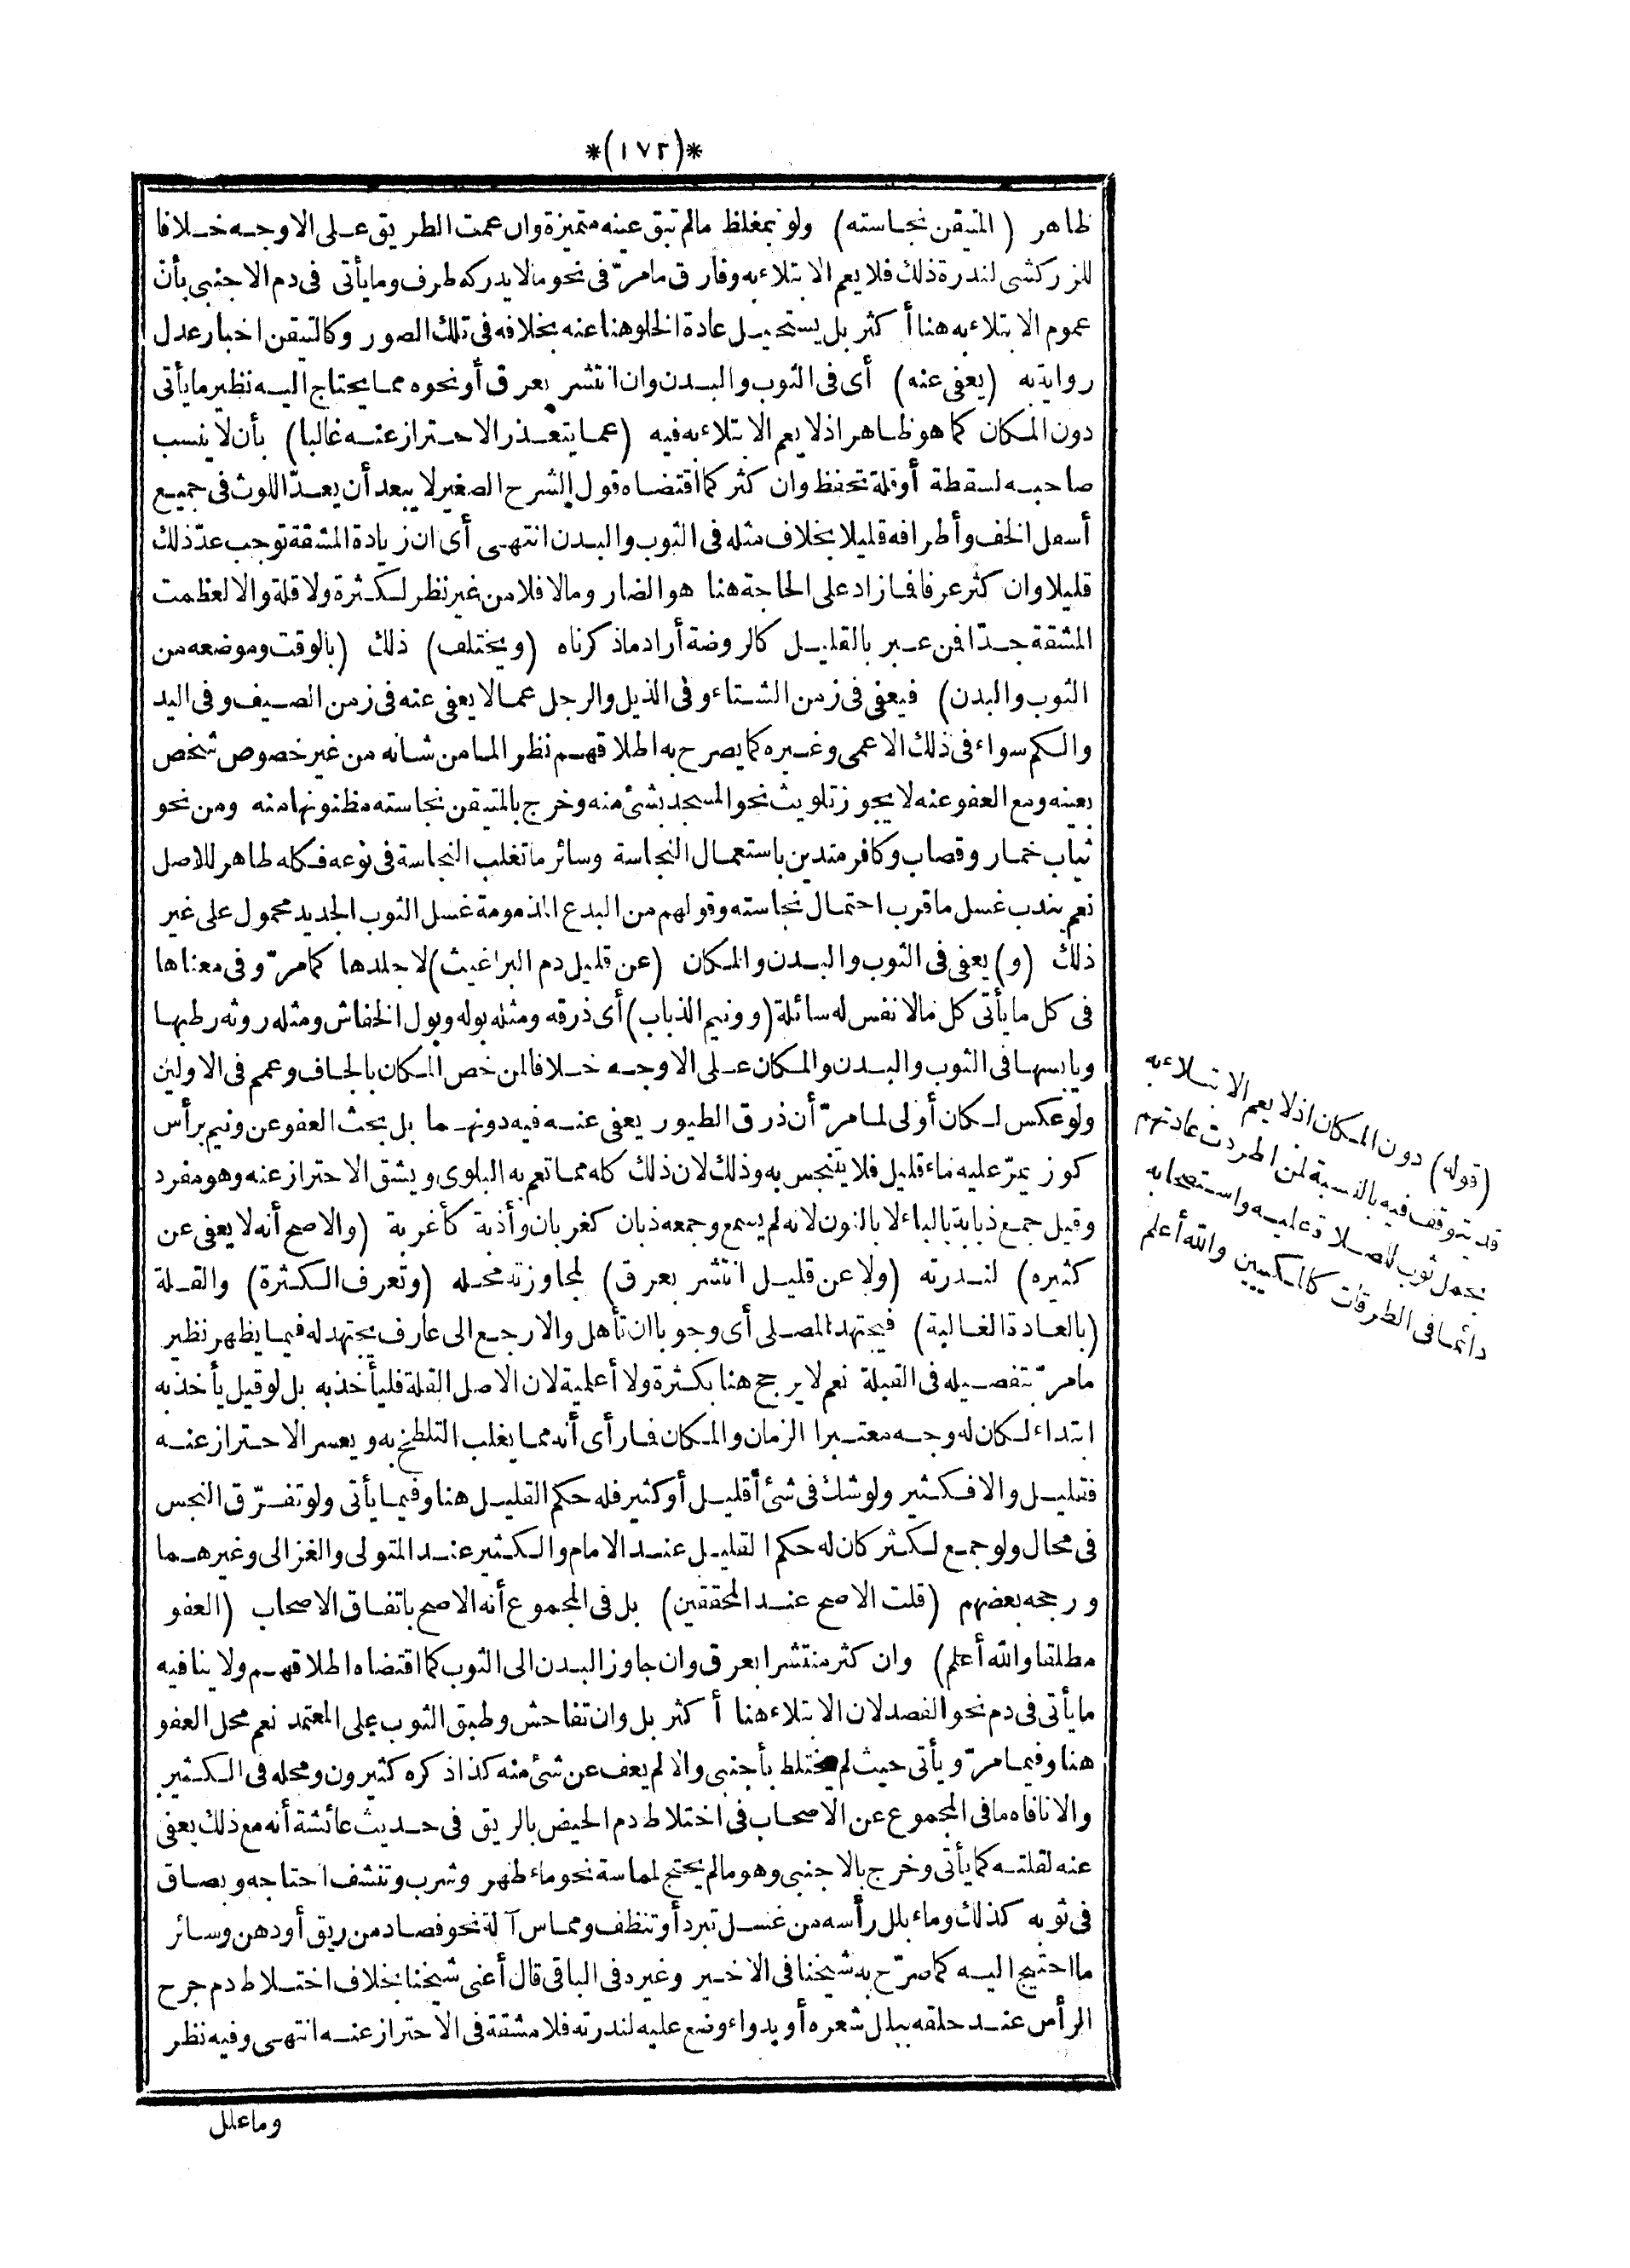 *(١٧٢)*
ظاهر (المتيقن نجاسته) ولو بمغلظ مالم تبق عينه متميزة وان عمت الطريق على الاوجه خلافا
للزركشى لندرة ذلك فلا يعم الابتلاء به وفارق ما مرّ فى نحو مالا يدركه طرف وما يأتى فى دم الاجنبى بأن
عموم الابتلاء به هنا أكثر بل يستحيل عادة الخلو هنا عنه بخلافه فى تلك الصور وكالتيقن اخبار عدل
رواية به (يعفى عنه) أى فى الثوب والبدن وان انتشر بعرق أو نحوه مما يحتاج اليه نظير ما يأتى
دون المكان كما هو ظاهر اذلا يعم الابتلاء به فيه (عما يتعذر الاحتراز عنه غالبا) بأن لا ينسب
صاحبه لسقطة أو قلة تحفظ وان كثر كما اقتضاه قول الشرح الصغير لا يبعد أن يعدّ اللوث فى جميع
أسفل الخف وأطرافه قليلا بخلاف مثله فى الثوب والبدن انتهى أى ان زيادة المشقة توجب عدّ ذلك
قليلا وان كثر عرفا فما زاد على الحاجة هنا هو الضار ومالا فلا من غير نظر لكثرة ولا قلة والا لعظمت
المشقة جدّا فمن عبر بالقليل كالروضة أراد ما ذكرناه (ويختلف) ذلك (بالوقت وموضعه من
الثوب والبدن) فيعفى فى زمن الشتاء وفى الذيل والرجل عما لا يعفى عنه فى زمن الصيف وفى اليد
والكم سواء فى ذلك الاعمى وغيره كما يصرح به اطلاقهم نظرا لما من شانه من غير خصوص شخص
بعينه ومع العفو عنه لا يجوز تلويث نحو المسجد بشئ منه وخرج بالمتيقن نجاسته مظنونها منه ومن نحو
ثياب خمار وقصاب وكافر متدين باستعمال النجاسة وسائر ما تغلب النجاسة فى نوعه فكله طاهر للاصل
نعم يندب غسل ما قرب احتمال نجاسته وقولهم من البدع المذمومة غسل الثوب الجديد محمول على غير
ذلك (و) يعفى فى الثوب والبدن والمكان (عن قليل دم البراغيث) لا جلدها كما مرّ وفى معناها
فى كل ما يأتى كل مالا نفس له سائلة (وونيم الذباب) أى ذرقه ومثله بوله وبول الخفاش ومثله روثه رطبها
ويابسها فى الثوب والبدن والمكان على الاوجه خلافا لمن خص المكان بالجاف وعمم فى الاولين
ولو عكس لكان أولى لما مرّ أن ذرق الطيور يعفى عنه فيه دونهما بل بحث العفو عن ونيم برأس
كوز يمرّ عليه ماء قليل فلا يتنجس به وذلك لان ذلك كله مما تعم به البلوى ويشق الاحتراز عنه وهو مفرد
وقيل جمع ذبابة بالباء لا بالنون لانه لم يسمع وجمعه ذبان كغربان وأذبة كأغربة (والاصح أنه لا يعفى عن
كثيره) لندرته (ولا عن قليل انتشر بعرق) لمجاوزته محله (وتعرف الكثرة) والقلة
(بالعادة الغالبة) فيجتهد المصلى أى وجوبا ان تأهل والا رجع الى عارف يجتهد له فيما يظهر نظير
ما مرّ تفصيله فى القبلة نعم لا يرجح هنا بكثرة ولا أعلمية لان الاصل القلة فليأخذ به بل لو قيل يأخذ به
ابتداء لكان له وجه معتبرا الزمان والمكان فما رأى أنه مما يغلب التلطخ به ويعسر الاحتراز عنه
فقليل والا فكثير ولو شك فى شئ أقليل أو كثير فله حكم القليل هنا وفيما يأتى ولو تفرّق النجس
فى محال ولو جمع لكثر كان له حكم القليل عند الامام والكثير عند المتولى والغزالى وغيرهما
ورجحه بعضهم (قلت الاصح عند المحققين) بل فى المجموع أنه الاصح باتفاق الاصحاب (العفو
مطلقا والله أعلم) وان كثر منتشرا بعرق وان جاوز البدن الى الثوب كما اقتضاه اطلاقهم ولا ينافيه
ما يأتى فى دم نحو الفصد لان الابتلاء هنا أكثر بل وان تفاحش وطبق الثوب على المعتمد نعم محل العفو
هنا وفيما مرّ ويأتى حيث لم يختلط بأجنبى والا لم يعف عن شئ منه كذا ذكره كثيرون ومحله فى الكثير
والا نافاه ما فى المجموع عن الاصحاب فى اختلاط دم الحيض بالريق فى حديث عائشة أنه مع ذلك يعفى
عنه لقلته كما يأتى وخرج بالاجنبى وهو مالم يحتج لمماسة نحو ماء طهر وشرب وتنشف احتاجه وبصاق
فى ثوبه كذلك وماء بلل رأسه من غسل تبرد أو تنظف ومماس آلة نحو فصاد من ريق أو دهن وسائر
ما احتيج اليه كما صرّح به شيخنا فى الاخير وغيره فى الباقى قال أعنى شيخنا بخلاف اختلاط دم جرح
الرأس عند حلقه ببلل شعره أو بدواء وضع عليه لندرته فلا مشقة فى الاحتراز عنه انتهى وفيه نظر
وما علل
(قوله) دون المكان اذلا يعم الابتلاء به
قد يتوقف فيه بالنسبة لمن اطردت عادتهم
بحمل ثوب للصلاة عليه واستصحابه
دائما فى الطرقات كالمكيين والله أعلم